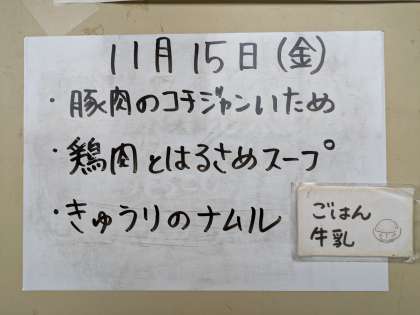 11月15日(金)
・豚肉のコチジャンいため
・鶏肉とはるさめスープ
・きゅうりのナムル
ごはん
牛乳